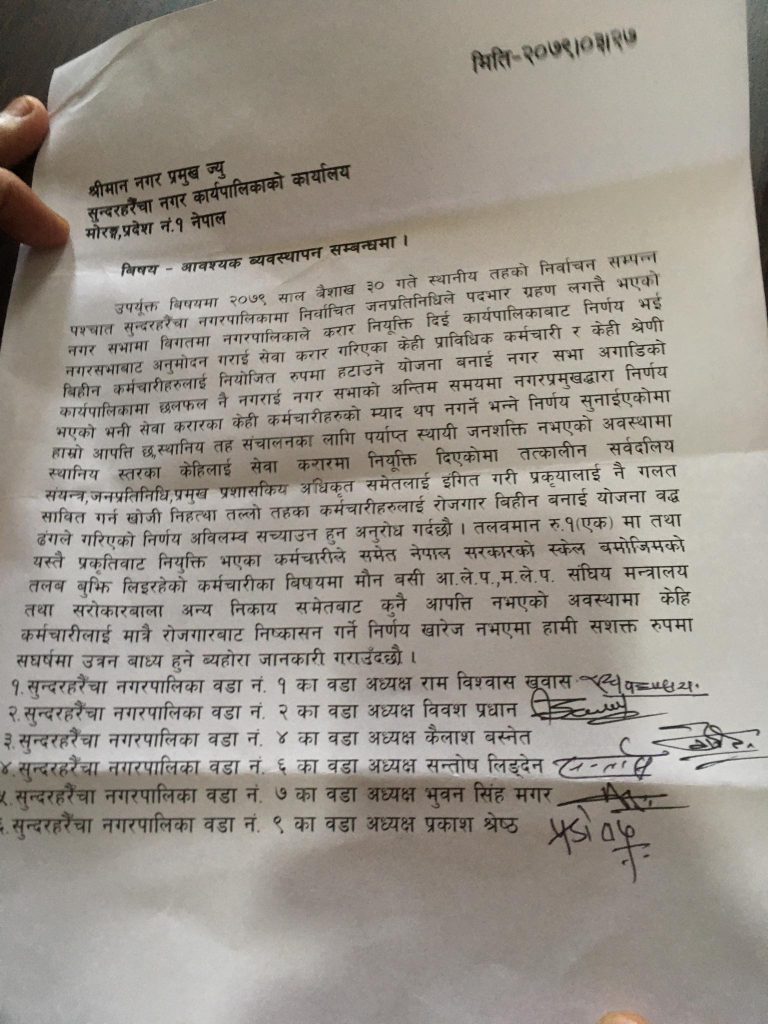 मिति-२०७९।०३।२७
श्रीमान नगर प्रमुख ज्यु
सुन्दरहरैंचा नगर कार्यपालिकाको कार्यालय
मोरङ्ग,प्रदेश नं.१ नेपाल
विषय - आवश्यक ब्यवस्थापन सम्बन्धमा ।
उपर्यूक्त बिषयमा २०७९ साल बैशाख ३० गते स्थानीय तहको निर्वाचन सम्पन्न
पश्चात सुन्दरहरैंचा नगरपालिकामा निर्वाचित जनप्रतिनिधिले पदभार ग्रहण लगत्तै भएको
नगर सभामा विगतमा नगरपालिकाले करार नियूक्ति दिई कार्यपालिकाबाट निर्णय भई
नगरसभाबाट अनुमोदन गराई सेवा करार गरिएका केही प्राविधिक कर्मचारी र केही श्रेणी
बिहीन कर्मचारीहरुलाई नियोजित रुपमा हटाउने योजना बनाई नगर सभा अगाडिको
कार्यपालिकामा छलफल नै नगराई नगर सभाको अन्तिम समयमा नगरप्रमुखद्धारा निर्णय
भएको भनी सेवा करारका केही कर्मचारीहरुको म्याद थप नगर्ने भन्ने निर्णय सुनाईएकोमा
हाम्रो आपत्ति छ,स्थानिय तह संचालनका लागि पर्याप्त स्थायी जनशक्ति नभएको अवस्थामा
स्थानिय स्तरका केहिलाई सेवा करारमा नियूक्ति दिएकोमा तत्कालीन सर्वदलिय
संयन्त्र,जनप्रतिनिधि,प्रमुख प्रशासकिय अधिकृत समेतलाई इंगित गरी प्रकृयालाई नै गलत
सावित गर्न खोजी निहत्था तल्लो तहका कर्मचारीहरुलाई रोजगार बिहीन बनाई योजना वद्ध
ढंगले गरिएको निर्णय अविलम्व सच्याउन हुन अनुरोध गर्दछौ । तलवमान रु.१(एक) मा तथा
यस्तै प्रकृतिवाट नियुक्ति भएका कर्मचारीले समेत नेपाल सरकारको स्केल बमोजिमको
तलब बुझि लिइरहेको कर्मचारीका बिषयमा मौन बसी आ.ले.प.,म.ले.प. संघिय मन्त्रालय
तथा सरोकारबाला अन्य निकाय समेतबाट कुनै आपत्ति नभएको अवस्थामा केहि
कर्मचारीलाई मात्रै रोजगारबाट निष्कासन गर्ने निर्णय खारेज नभएमा हामी सशक्त रुपमा
सघर्षमा उत्रन बाध्य हुने ब्यहोरा जानकारी गराउँदछौ ।
१.सुन्दरहरैंचा नगरपालिका वडा नं. १ का वडा अध्यक्ष राम विश्वास खवास
२.सुन्दरहरैंचा नगरपालिका वडा नं. २ का वडा अध्यक्ष विवश प्रधान
३.सुन्दरहरैंचा नगरपालिका वडा नं. ४ का वडा अध्यक्ष कैलाश बस्नेत
४.सुन्दरहरैंचा नगरपालिका वडा नं. ६ का वडा अध्यक्ष सन्तोष लिङ्देन
५.सुन्दरहरैंचा नगरपालिका वडा नं. ७ का वडा अध्यक्ष भुवन सिंह मगर
६.सुन्दरहरैंचा नगरपालिका वडा नं. ९ का वडा अध्यक्ष प्रकाश श्रेष्ठ